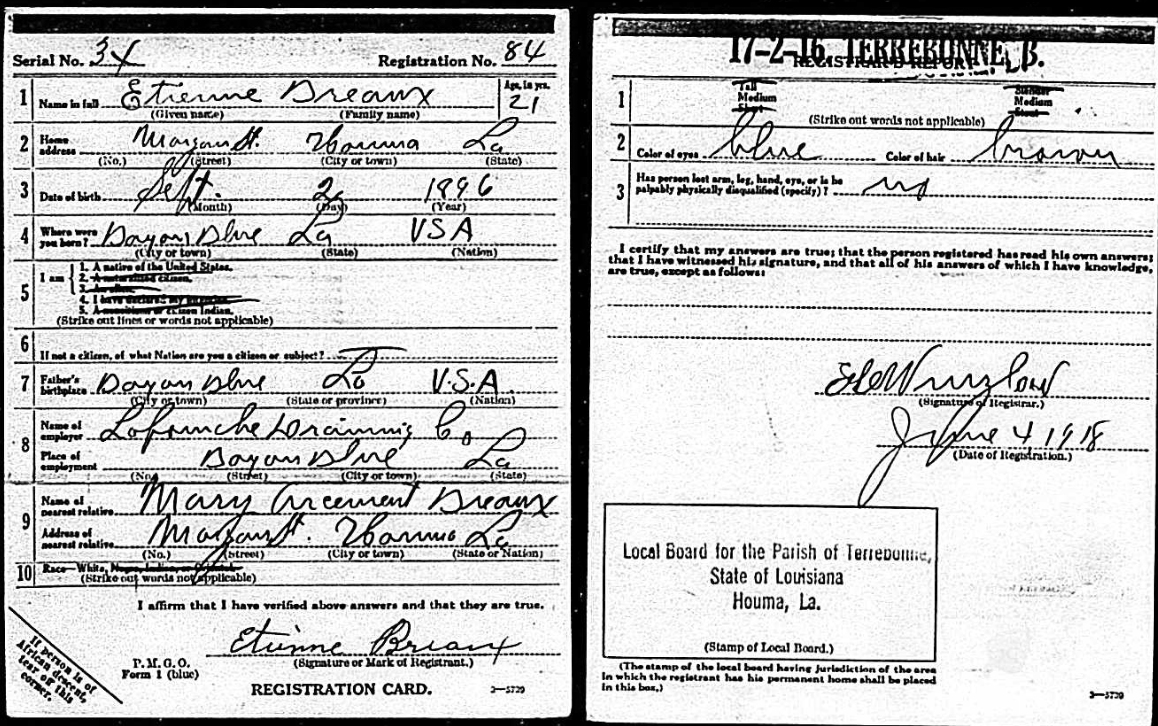 Serial No. 34 Registration No. 84
1 Name in full Etienne Breaux Age, in yrs. 21
(Given name) (Family name)
2 Home address Morgan St. Houma La
(No.) (Street) (City or town) (State)
3 Date of birth Sept. 2 1896
(Month) (Day) (Year)
4 Where were you born? Bayou Blue La USA
(City or town) (State) (Nation)
5 I am
1. A native of the United States.
2. A naturalized citizen.
3. An alien.
4. I have declared my
5. A citizen Indian.
(Strike out lines or words not applicable)
6 If not a citizen, of what Nation are you a citizen or subject?
7 Father's birthplace Bayou Blue La U.S.A
(City or town) (State or province) (Nation)
8 Name of employer Lafourche Co
Place of employment Bayou Blue La
(No.) (Street) (City or town) (State)
9 Name of nearest relative Mary Arcement Breaux
Address of nearest relative Morgan St. Houma La
(No.) (Street) (City or town) (State or Nation)
10 Race—White, Negro, Indian, or
(Strike out words not applicable)
I affirm that I have verified above answers and that they are true.
Etienne Breaux
P. M. G. O. (Signature or Mark of Registrant.)
Form 1 (blue)
REGISTRATION CARD. 3—5729
If person is of
African descent,
tear off this
corner.
17-2-16 TERREBONNE, B.
REGISTRAR'S REPORT
1 Tall Slender
Medium Medium
Short Stout
(Strike out words not applicable)
2 Color of eyes blue Color of hair brown
3 Has person lost arm, leg, hand, eye, or is he
palpably physically disqualified (specify)? no
I certify that my answers are true; that the person registered has read his own answers;
that I have witnessed his signature, and that all of his answers of which I have knowledge,
are true, except as follows:
Winzlow
(Signature of Registrar.)
June 4 1918
(Date of Registration.)
Local Board for the Parish of Terrebonne,
State of Louisiana
Houma, La.
(Stamp of Local Board.)
(The stamp of the local board having jurisdiction of the area
in which the registrant has his permanent home shall be placed
in this box.)
3—5729